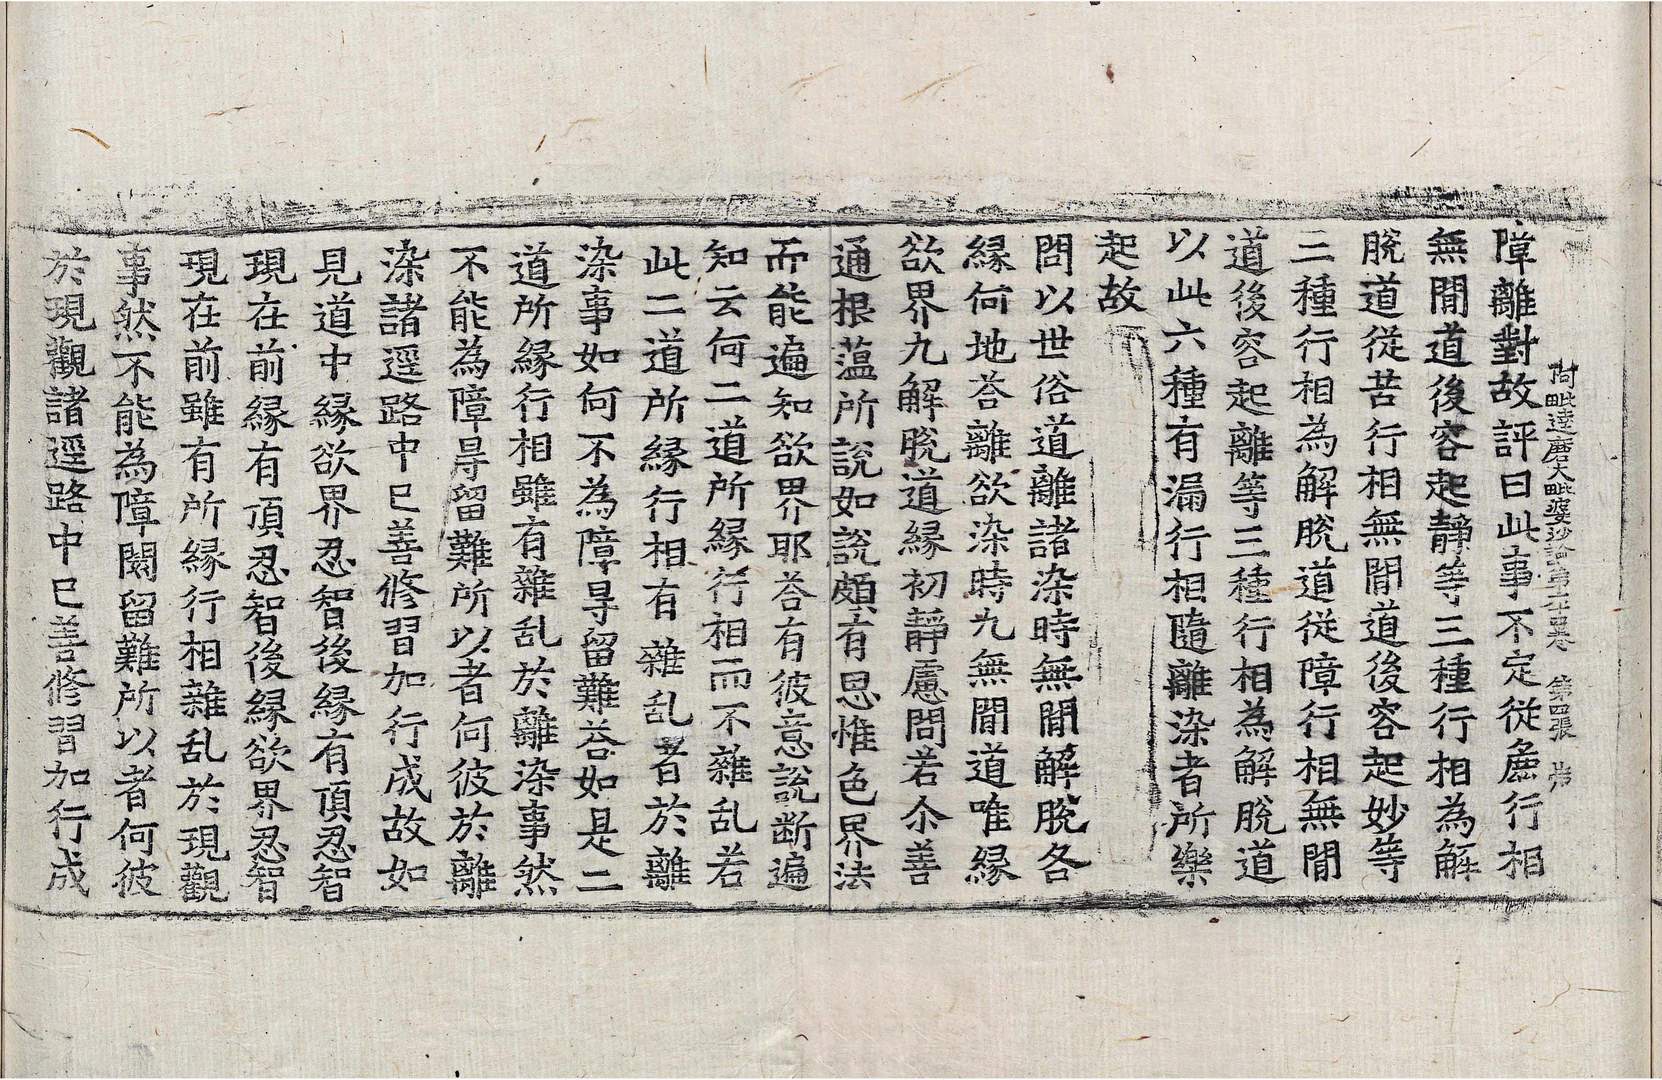 阿毗達磨大毗婆沙論第六十四卷 第四張 弟
障離對故評曰此事不定從麁行相
無間道後容起靜等三種行相為解
脫道從苦行相無間道後容起妙等
三種行相為解脫道從障行相無間
道後容起離等三種行相為解脫道
以此六種有漏行相隨離染者所樂
起故
問以世俗道離諸染時無間解脫各
緣何地荅離欲染時九無間道唯緣
欲界九解脫道緣初靜慮問若尒善
通根蘊所說如說頗有思惟色界法
而能遍知欲界耶荅有彼意說断遍
知云何二道所緣行相而不雜乱若
此二道所緣行相有雜乱者於離
染事如何不為障㝵留難荅如是二
道所緣行相雖有雜乱於離染事然
不能為障㝵留難所以者何彼於離
染諸逕路中已善修習加行成故如
見道中緣欲界忍智後緣有頂忍智
現在前緣有頂忍智後緣欲界忍智
現在前雖有所緣行相雜乱於現觀
事然不能為障閡留難所以者何彼
於現觀諸逕路中已善修習加行成